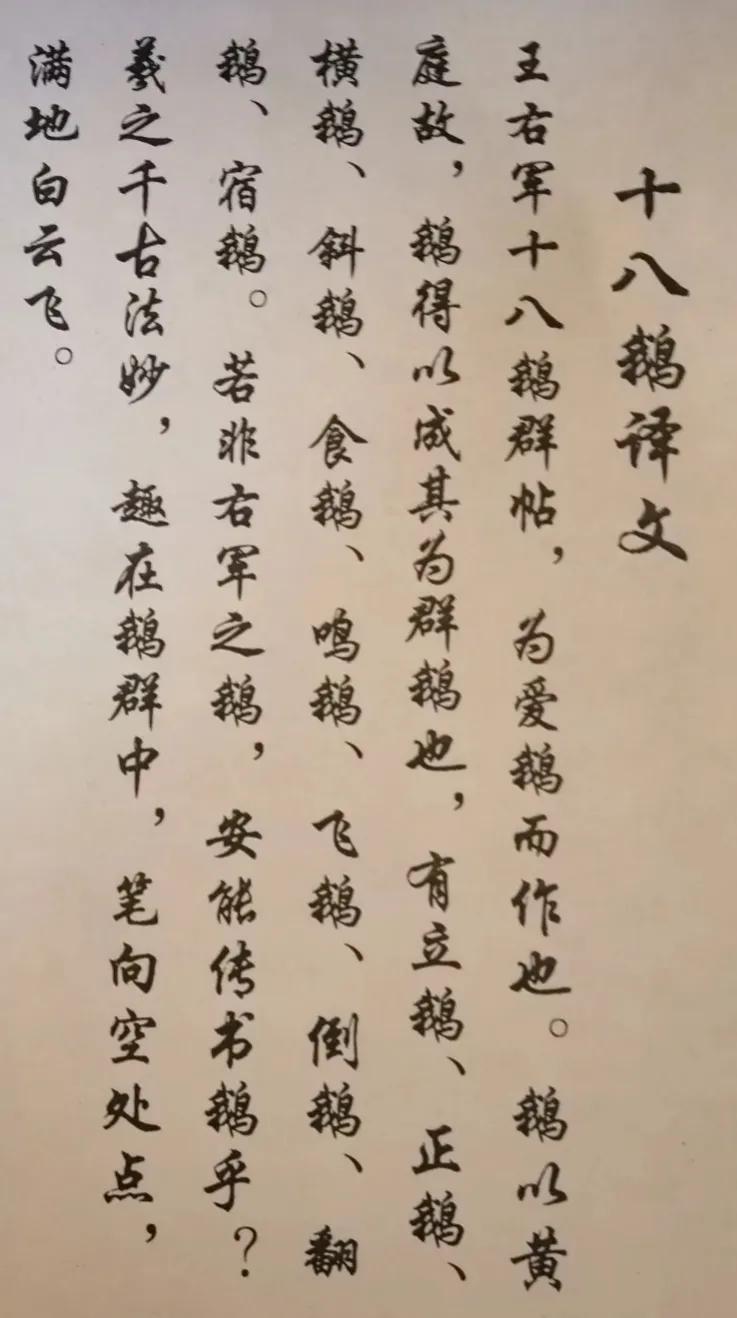 十八鹅译文
王右军十八鹅群帖，为爱鹅而作也。鹅以黄
庭故，鹅得以成其为群鹅也，有立鹅、正鹅、
横鹅、斜鹅、食鹅、鸣鹅、飞鹅、倒鹅、翻
鹅、宿鹅。若非右军之鹅，安能传书鹅乎？
羲之千古法妙，趣在鹅群中，笔向空处点，
满地白云飞。